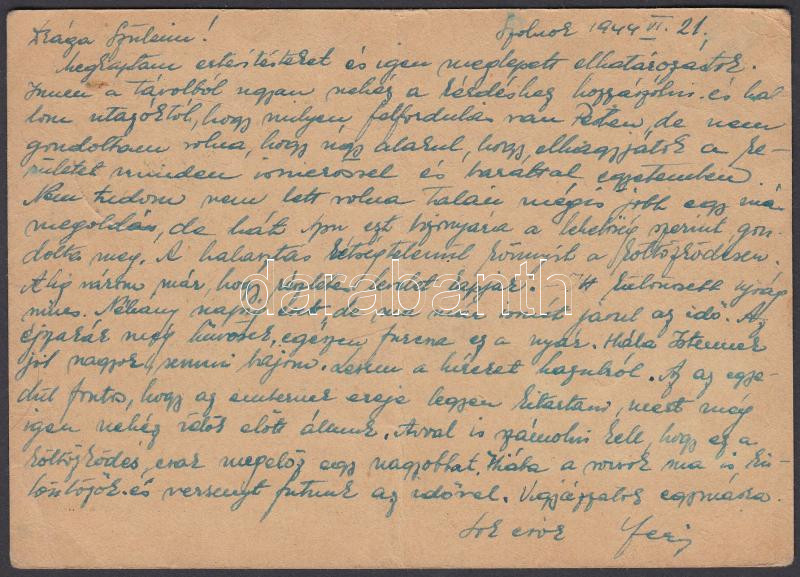 Drága Szüleim! Szolnok 1944 VI. 21.
Megkaptam értesítésteket és igen meglepett elhatározástok.
Innen a távolból ugyan nehéz a kérdéshez hozzászólni és hal
lom utazóktól, hogy milyen felfordulás van Pesten, de nem
gondoltam volna, hogy úgy alakul, hogy elhagyjátok a
rületet minden ismerőssel és baráttal egyetemben.
Nem tudom nem lett volna talán mégis jobb egy más
megoldás, de hát Apu ezt bizonyára a lehetőség szerint gon
dolta meg. A halasztás kétségtelenül könnyít a költözködésen.
Alig várom már, hogy levelet kapjak. Itt különösebb újság
nincs. Néhány napja de ma ismét javul az idő. Az
éjszakák még hűvösek, egészen furcsa ez a nyár. Hála Istennek
jól vagyok, semmi bajom. Lesem a híreket hazulról. Az az egye
dül fontos, hogy az embernek ereje legyen kitartani, mert még
igen nehéz idők előtt állunk. Avval is számolni kell, hogy ez a
költözködés, csak megelőz egy nagyobbat. Hiába a sorsok ma is kü
lönbözők és versenyt futunk az idővel. Vigyázzatok egymásra.
Sok csók Feri
darabanth